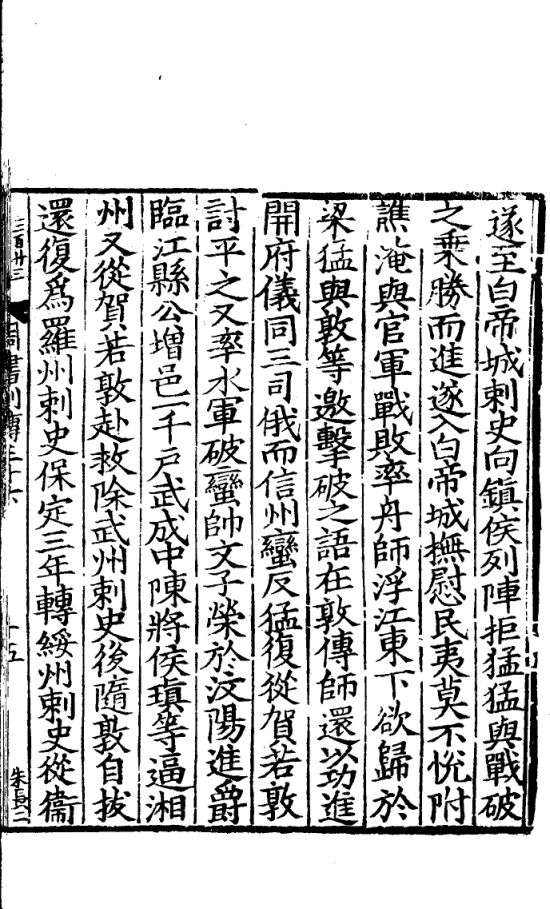 遂至白帝城刺史向鎮侯列陣拒猛猛與戰破
之乗勝而進遂入白帝城撫慰民夷莫不悅附
譙淹與官軍戰敗率舟師浮江東下欲歸於
梁猛與敦等邀擊破之語在敦傳師還以功進
開府儀同三司俄而信州蠻反猛復從賀若敦
討平之又率水軍破蠻帥文子榮於汶陽進爵
臨江縣公增邑一千戶武成中陳將侯瑱等逼湘
州又從賀若敦赴救除武州刺史後隨敦自拔
還復爲羅州刺史保定三年轉綏州刺史從衞
三百卅三
周書列傳三十六
十五
朱長二